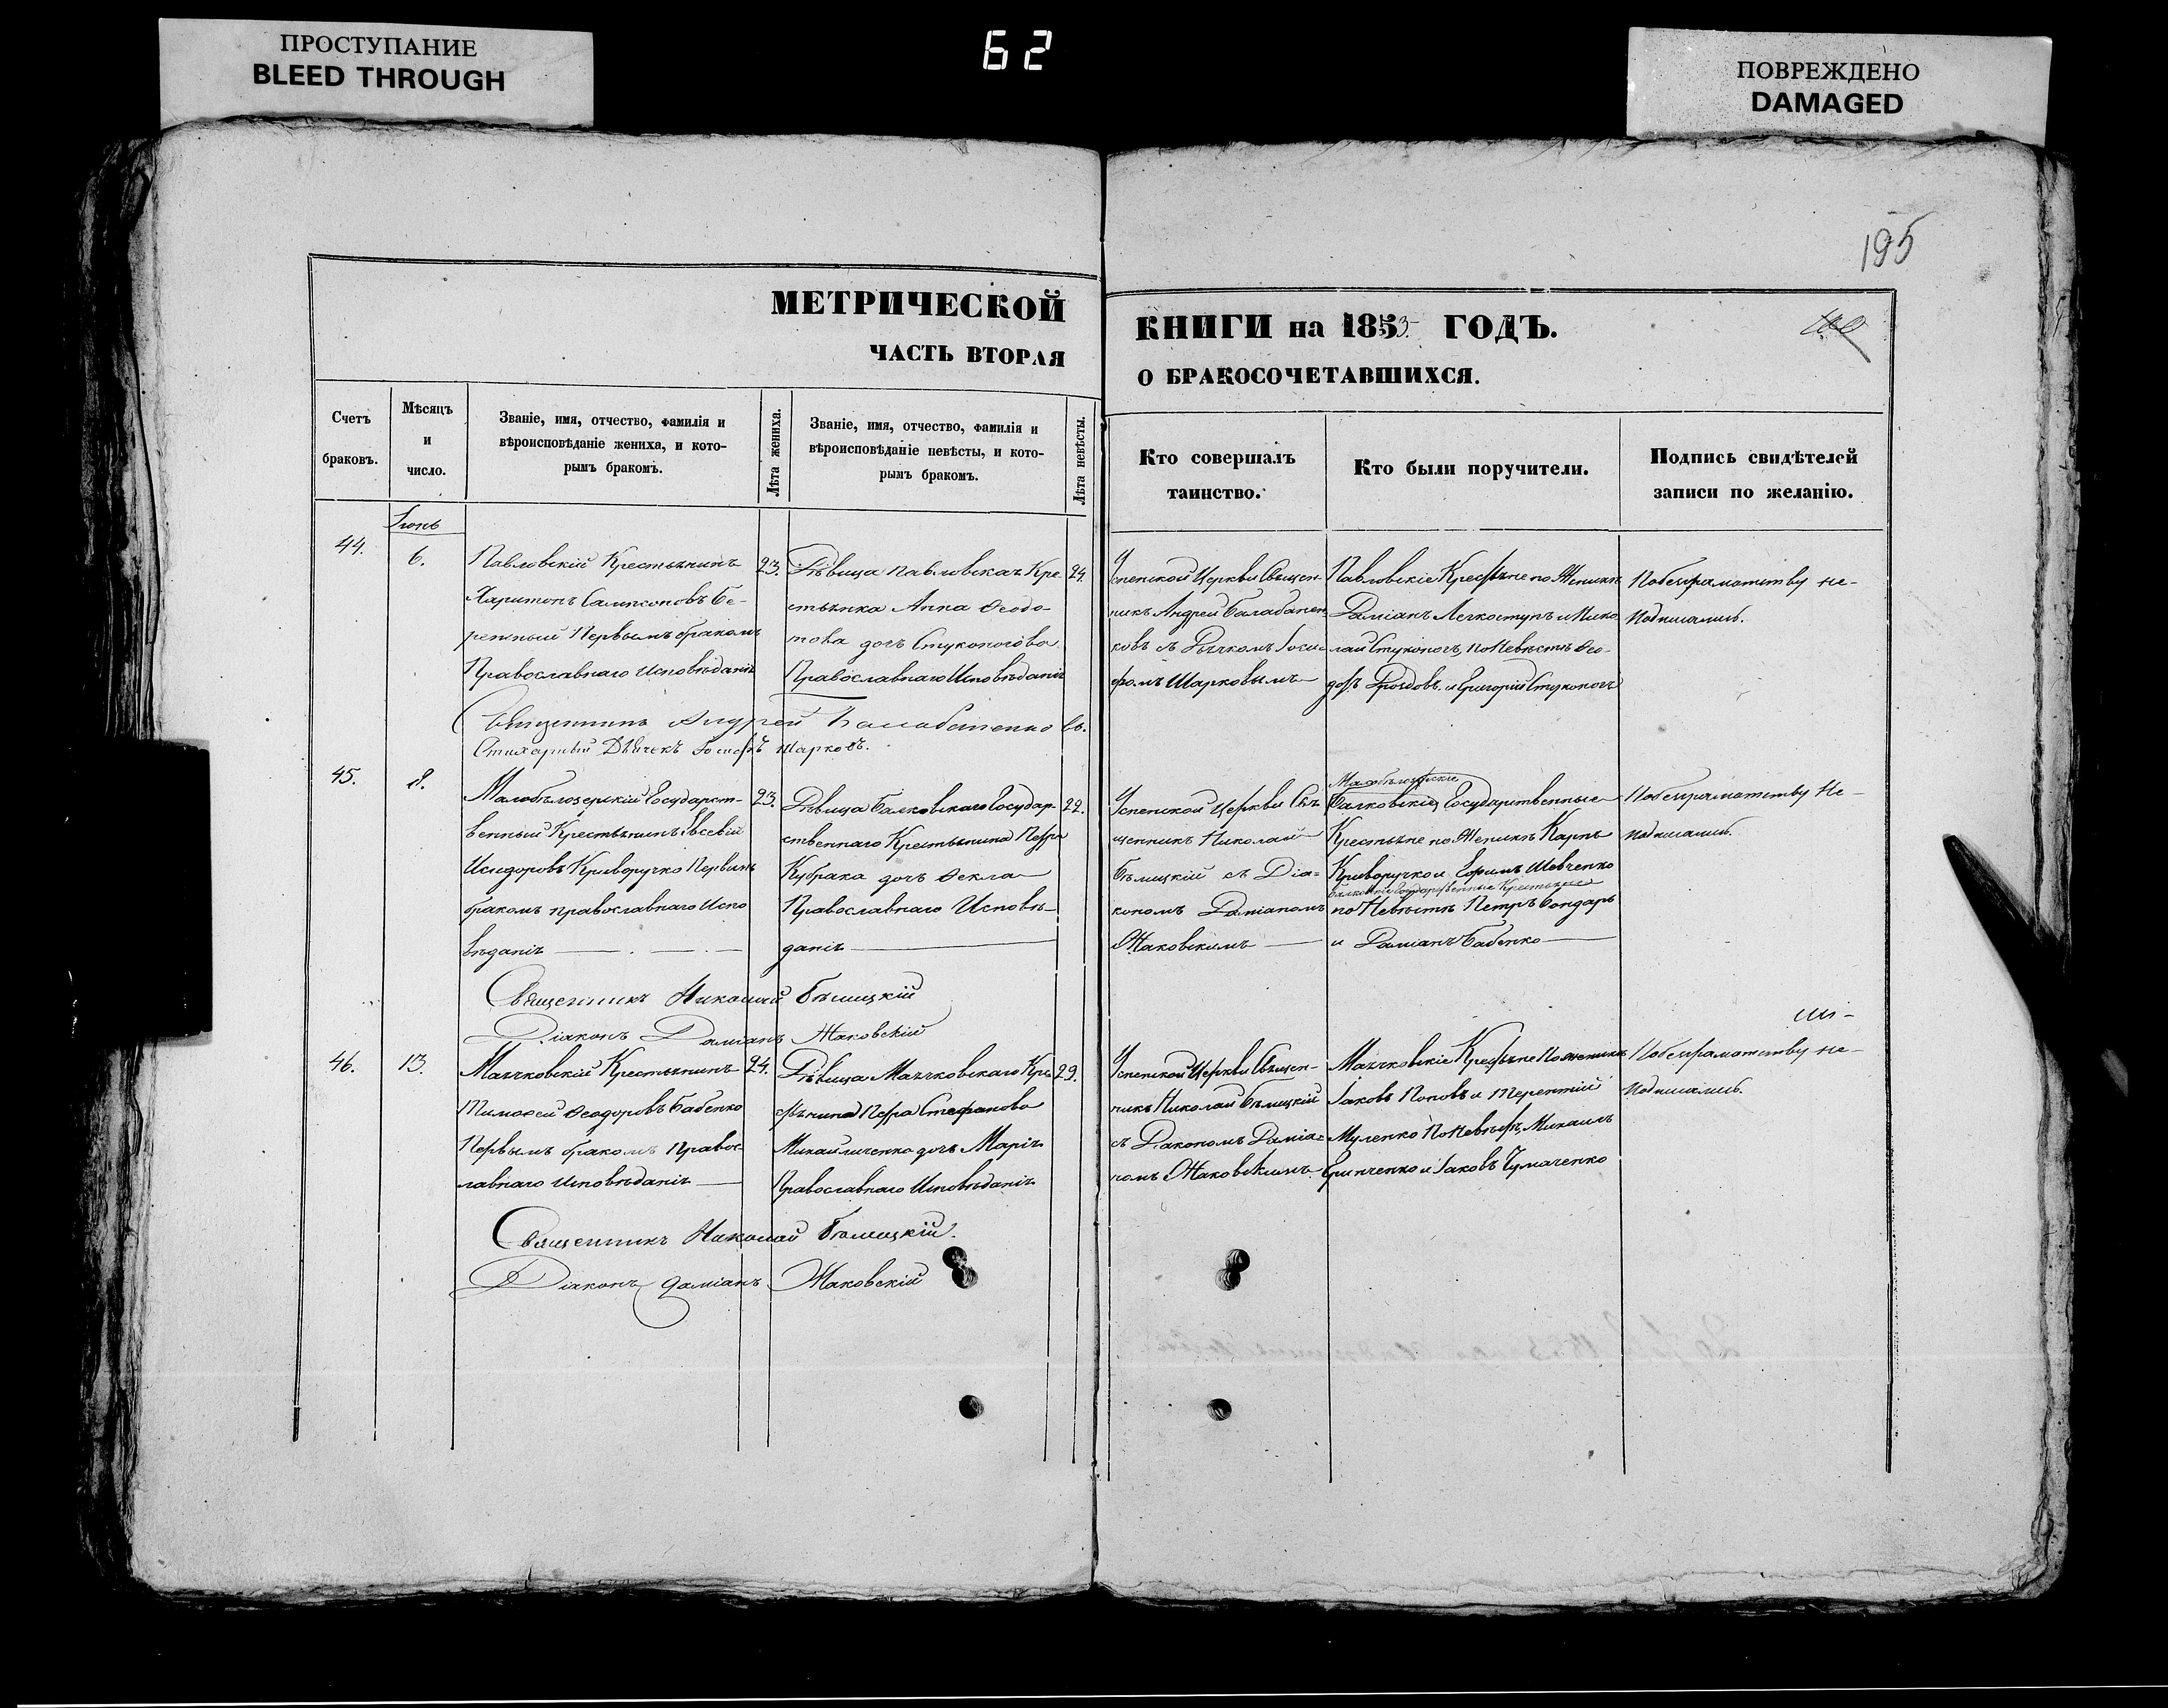 ПРОСТУПАНИЕ
BLEED THROUGH
62
ПОВРЕЖДЕНО
DAMAGED
195
МЕТРИЧЕСКОЙ
ЧАСТЬ ВТОРАЯ
КНИГИ на 1853 ГОДЪ.
О БРАКОСОЧЕТАВШИХСЯ.
Счетъ
браковъ.
Мѣсяцъ
и
число.
Званіе, имя, отчество, фамилія и
вѣроисповѣданіе жениха, и кото-
рымъ бракомъ.
Лѣта жениха.
Званіе, имя, отчество, фамилія и
вѣроисповѣданіе невѣсты, и кото-
рымъ бракомъ.
Лѣта невѣсты.
Кто совершалъ
таинство.
Кто были поручители.
Подпись свидѣтелей
записи по желанію.
44.
Іюнь
6.
Павловскій Крестьянинъ
Харитонъ Сампсоновъ Бе-
режный Первымъ бракомъ
Православнаго Исповѣданія
23.
Дѣвица Павловская Кре-
стьянка Анна Ѳеодо-
това дочь Стуконогова
Православнаго Исповѣданія
24.
Успенской Церкви Священ-
никъ Андрей Балабанен-
ковъ съ Дьячкомъ Іоси-
фомъ Шарковымъ
Павловскіе Крестьяне по Женихѣ
Даміанъ Легкоступъ и Нико-
лай Стуконогъ, по Невѣстѣ Ѳео-
дотъ Дроздовъ и Григорій Стуконогъ
По безграматству не-
подписались.
Священникъ Андрей Балабаненковъ.
Стихарный Дьячекъ Іосифъ Шарковъ.
45.
8.
Малобѣлозерскій Государст-
венный Крестьянинъ Евсевій
Исидоровъ Криворучко Первымъ
бракомъ православнаго Испо
вѣданія
23.
Дѣвица Балковскаго Государ-
ственнаго Крестьянина Петра
Кубрака дочь Ѳекла
Православнаго Исповѣ-
данія
22.
Успенской Церкви Свя
щенникъ Николай
Бѣлицкій съ Діа-
кономъ Даміаномъ
Жаковскимъ
Малобѣлозерскіе
Балковскіе Государственные
Крестьяне по Женихѣ Карпъ
Криворучко и Ефимъ Шевченко
Балковскіе Государственные Крестьяне
по Невѣстѣ Петръ Бондарь
и Даміанъ Бабенко
По безграматству Не-
подписались.
Священникъ Николай Бѣлицкій
Діаконъ Даміанъ Жаковскій
46.
13.
Маячковскій Крестьянинъ
Тимоѳей Ѳеодоровъ Бабенко
Первымъ бракомъ Правос-
лавнаго Исповѣданія
24.
Дѣвица Маячковскаго Кре-
стьянина Петра Стефанова
Михайличенко дочь Марія
Православнаго Исповѣданія
29.
Успенской Церкви Священ-
никъ Николай Бѣлицкій
съ Діакономъ Даміа-
номъ Жаковскимъ
Маячковскіе Крестьяне По женихѣ
Іаковъ Поповъ и Терентій
Муленко По Невѣстѣ, Михаилъ
Гринченко и Іаковъ Чумаченко
По безграматству не-
подписались.
Священникъ Николай Бѣлицкій.
Діаконъ Даміанъ Жаковскій